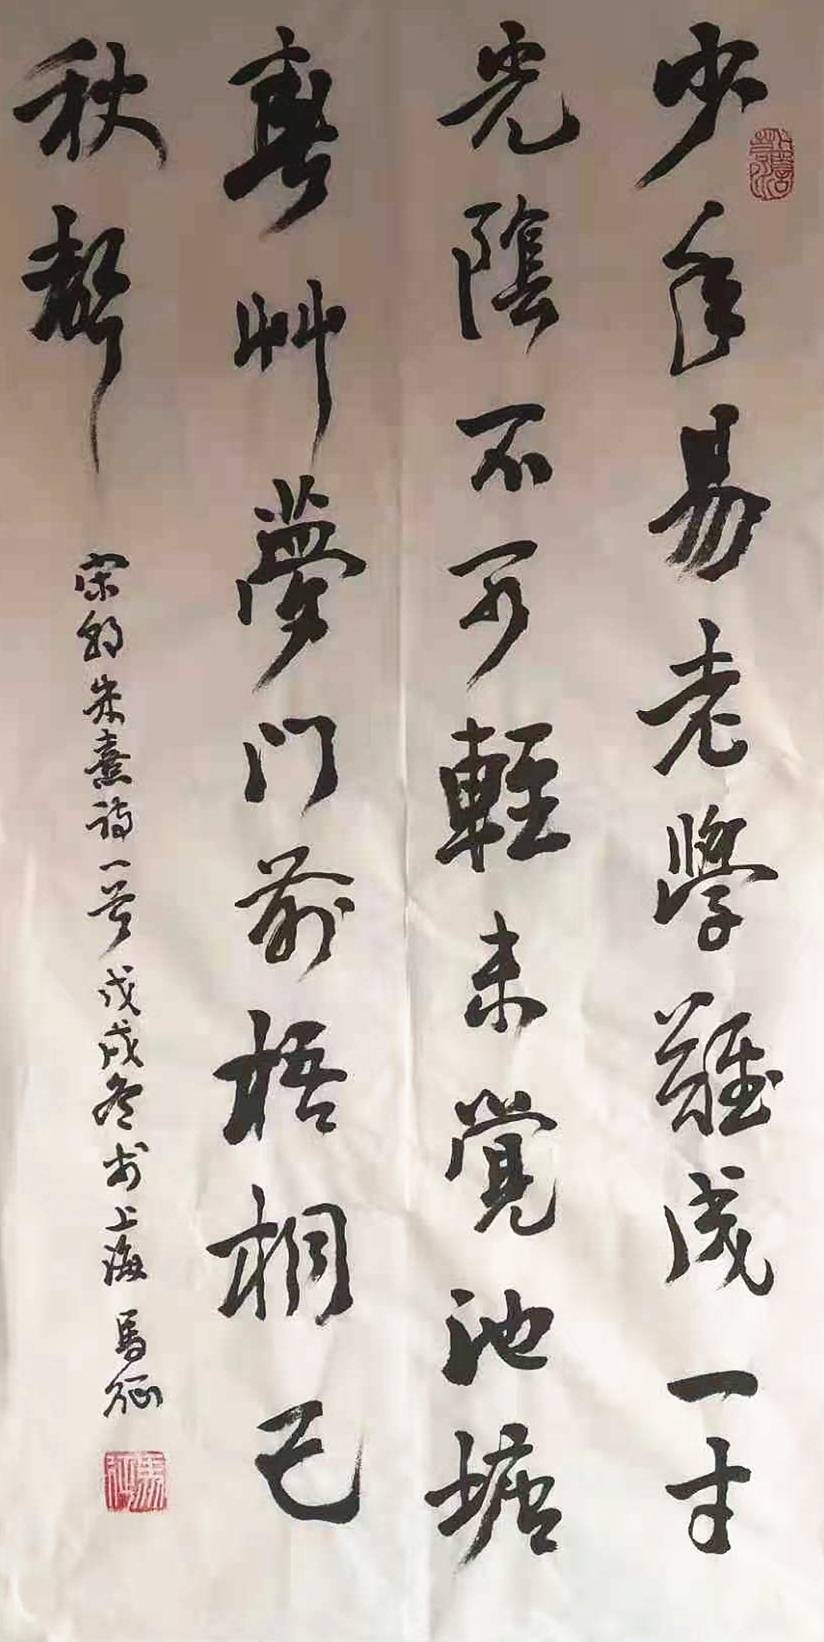 少年易老學難成一寸
光陰不可輕未覺池塘
春草夢門前梧桐已
秋聲
宋朝朱熹詩一首戊戌冬於上海馬征
馬征